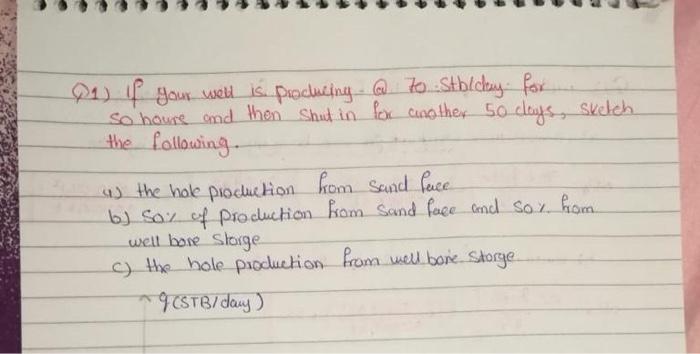 Q1) If your well is producing @ 70 stb/day for
50 hours and then shut in for another 50 days, sketch
the following.
a) the hole production from sand face
b) 50% of production from sand face and 50% from
well bore storge
c) the hole production from well bore storge
q(STB/day)